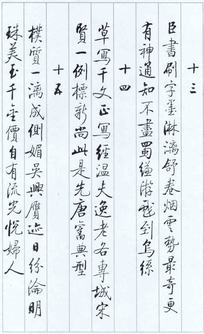 十三
臣書刷字墨淋漓舒卷烟雲勢最奇更
有神通知不盡蜀縑游戲到烏絲
十四
草寫千文正寫經溫夫逸老各專城宋
賢一例標新尚此是先唐舊典型
十五
樸質一漓成側媚吳興贋迹日紛淪明
珠美玉千金價自有流光悅婦人